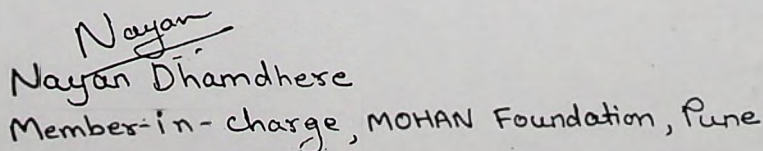 Nayan
Nayan Dhamdhere
Member-in-charge, MOHAN Foundation, Pune